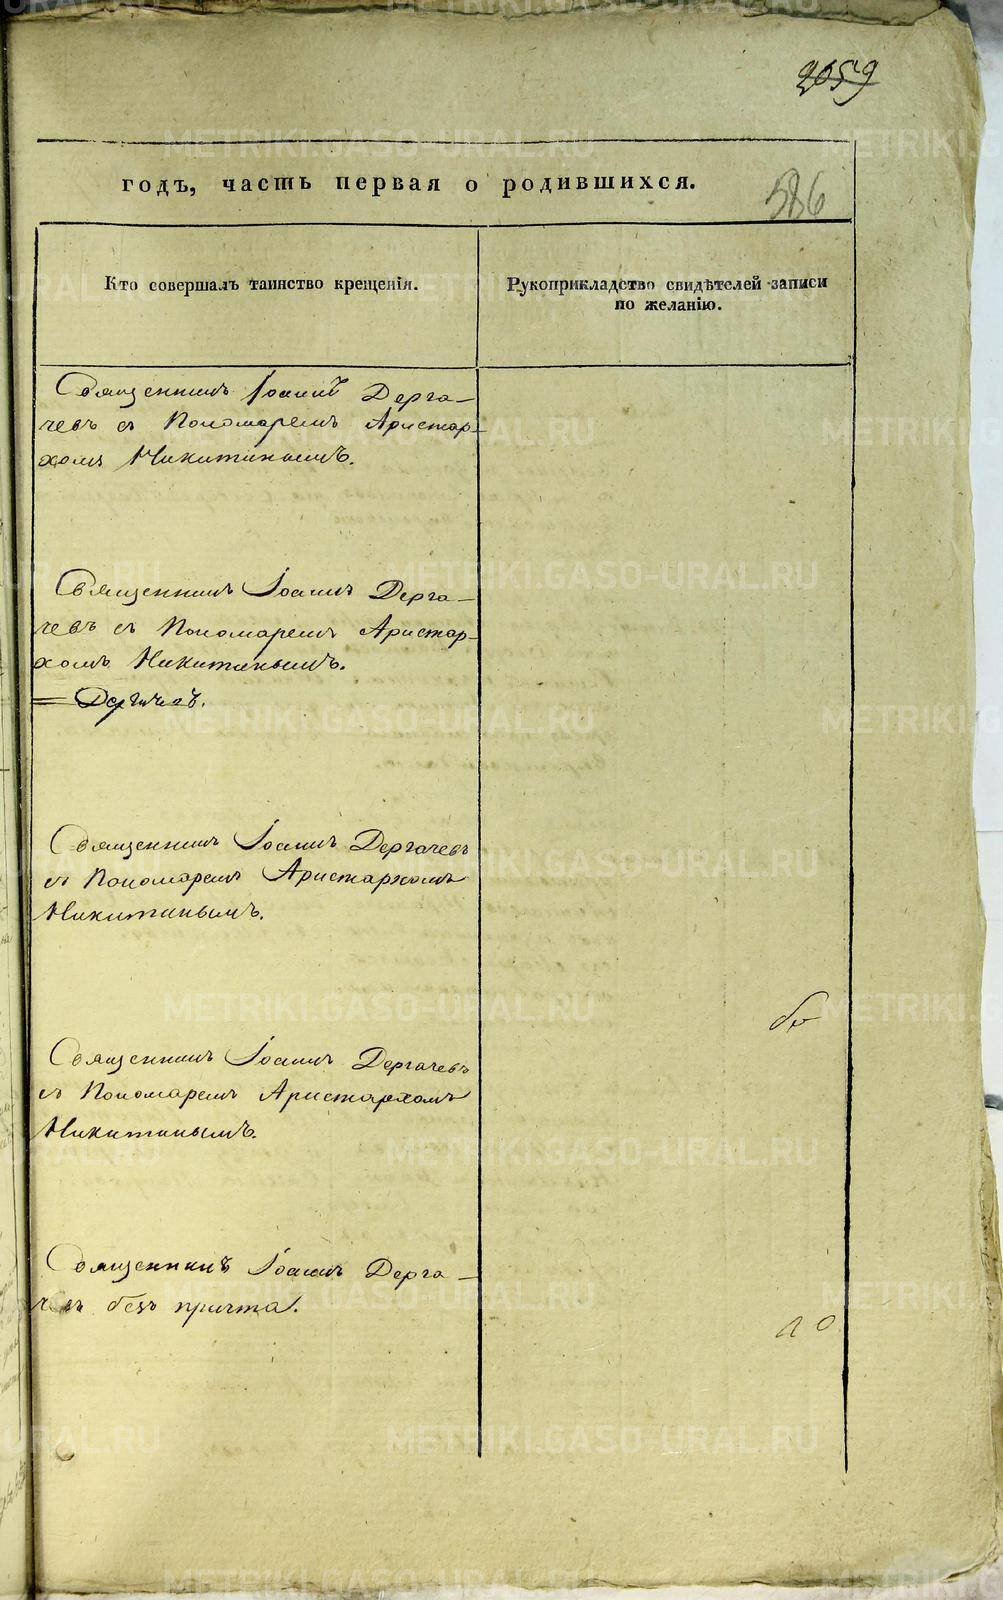 2059
годъ, часть первая о родившихся.
586
Кто совершалъ таинство крещенія.
Рукоприкладство свидѣтелей записи
по желанію.
Священникъ Іоаннъ Дерга-
чевъ съ Пономаремъ Аристар-
хомъ Никитинымъ.
Священникъ Іоаннъ Дерга-
чевъ съ Пономаремъ Аристар-
хомъ Никитинымъ.
= Дергачевъ.
Священникъ Іоаннъ Дергачевъ
съ Пономаремъ Аристархомъ
Никитинымъ.
Священникъ Іоаннъ Дергачевъ
съ Пономаремъ Аристархомъ
Никитинымъ.
Священникъ Іоаннъ Дерга-
чевъ безъ причта.
METRIKI.GASO-URAL.RU